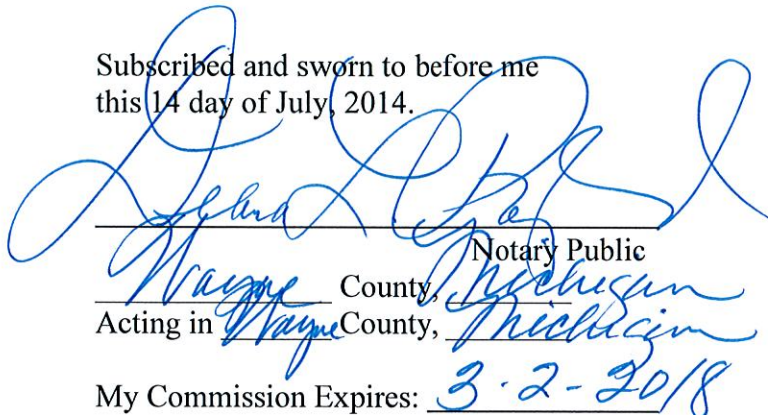 Subscribed and sworn to before me
this 14 day of July, 2014.
Debra L
Notary Public
Wayne County, Michigan
Acting in Wayne County, Michigan
My Commission Expires: 3-2-2018